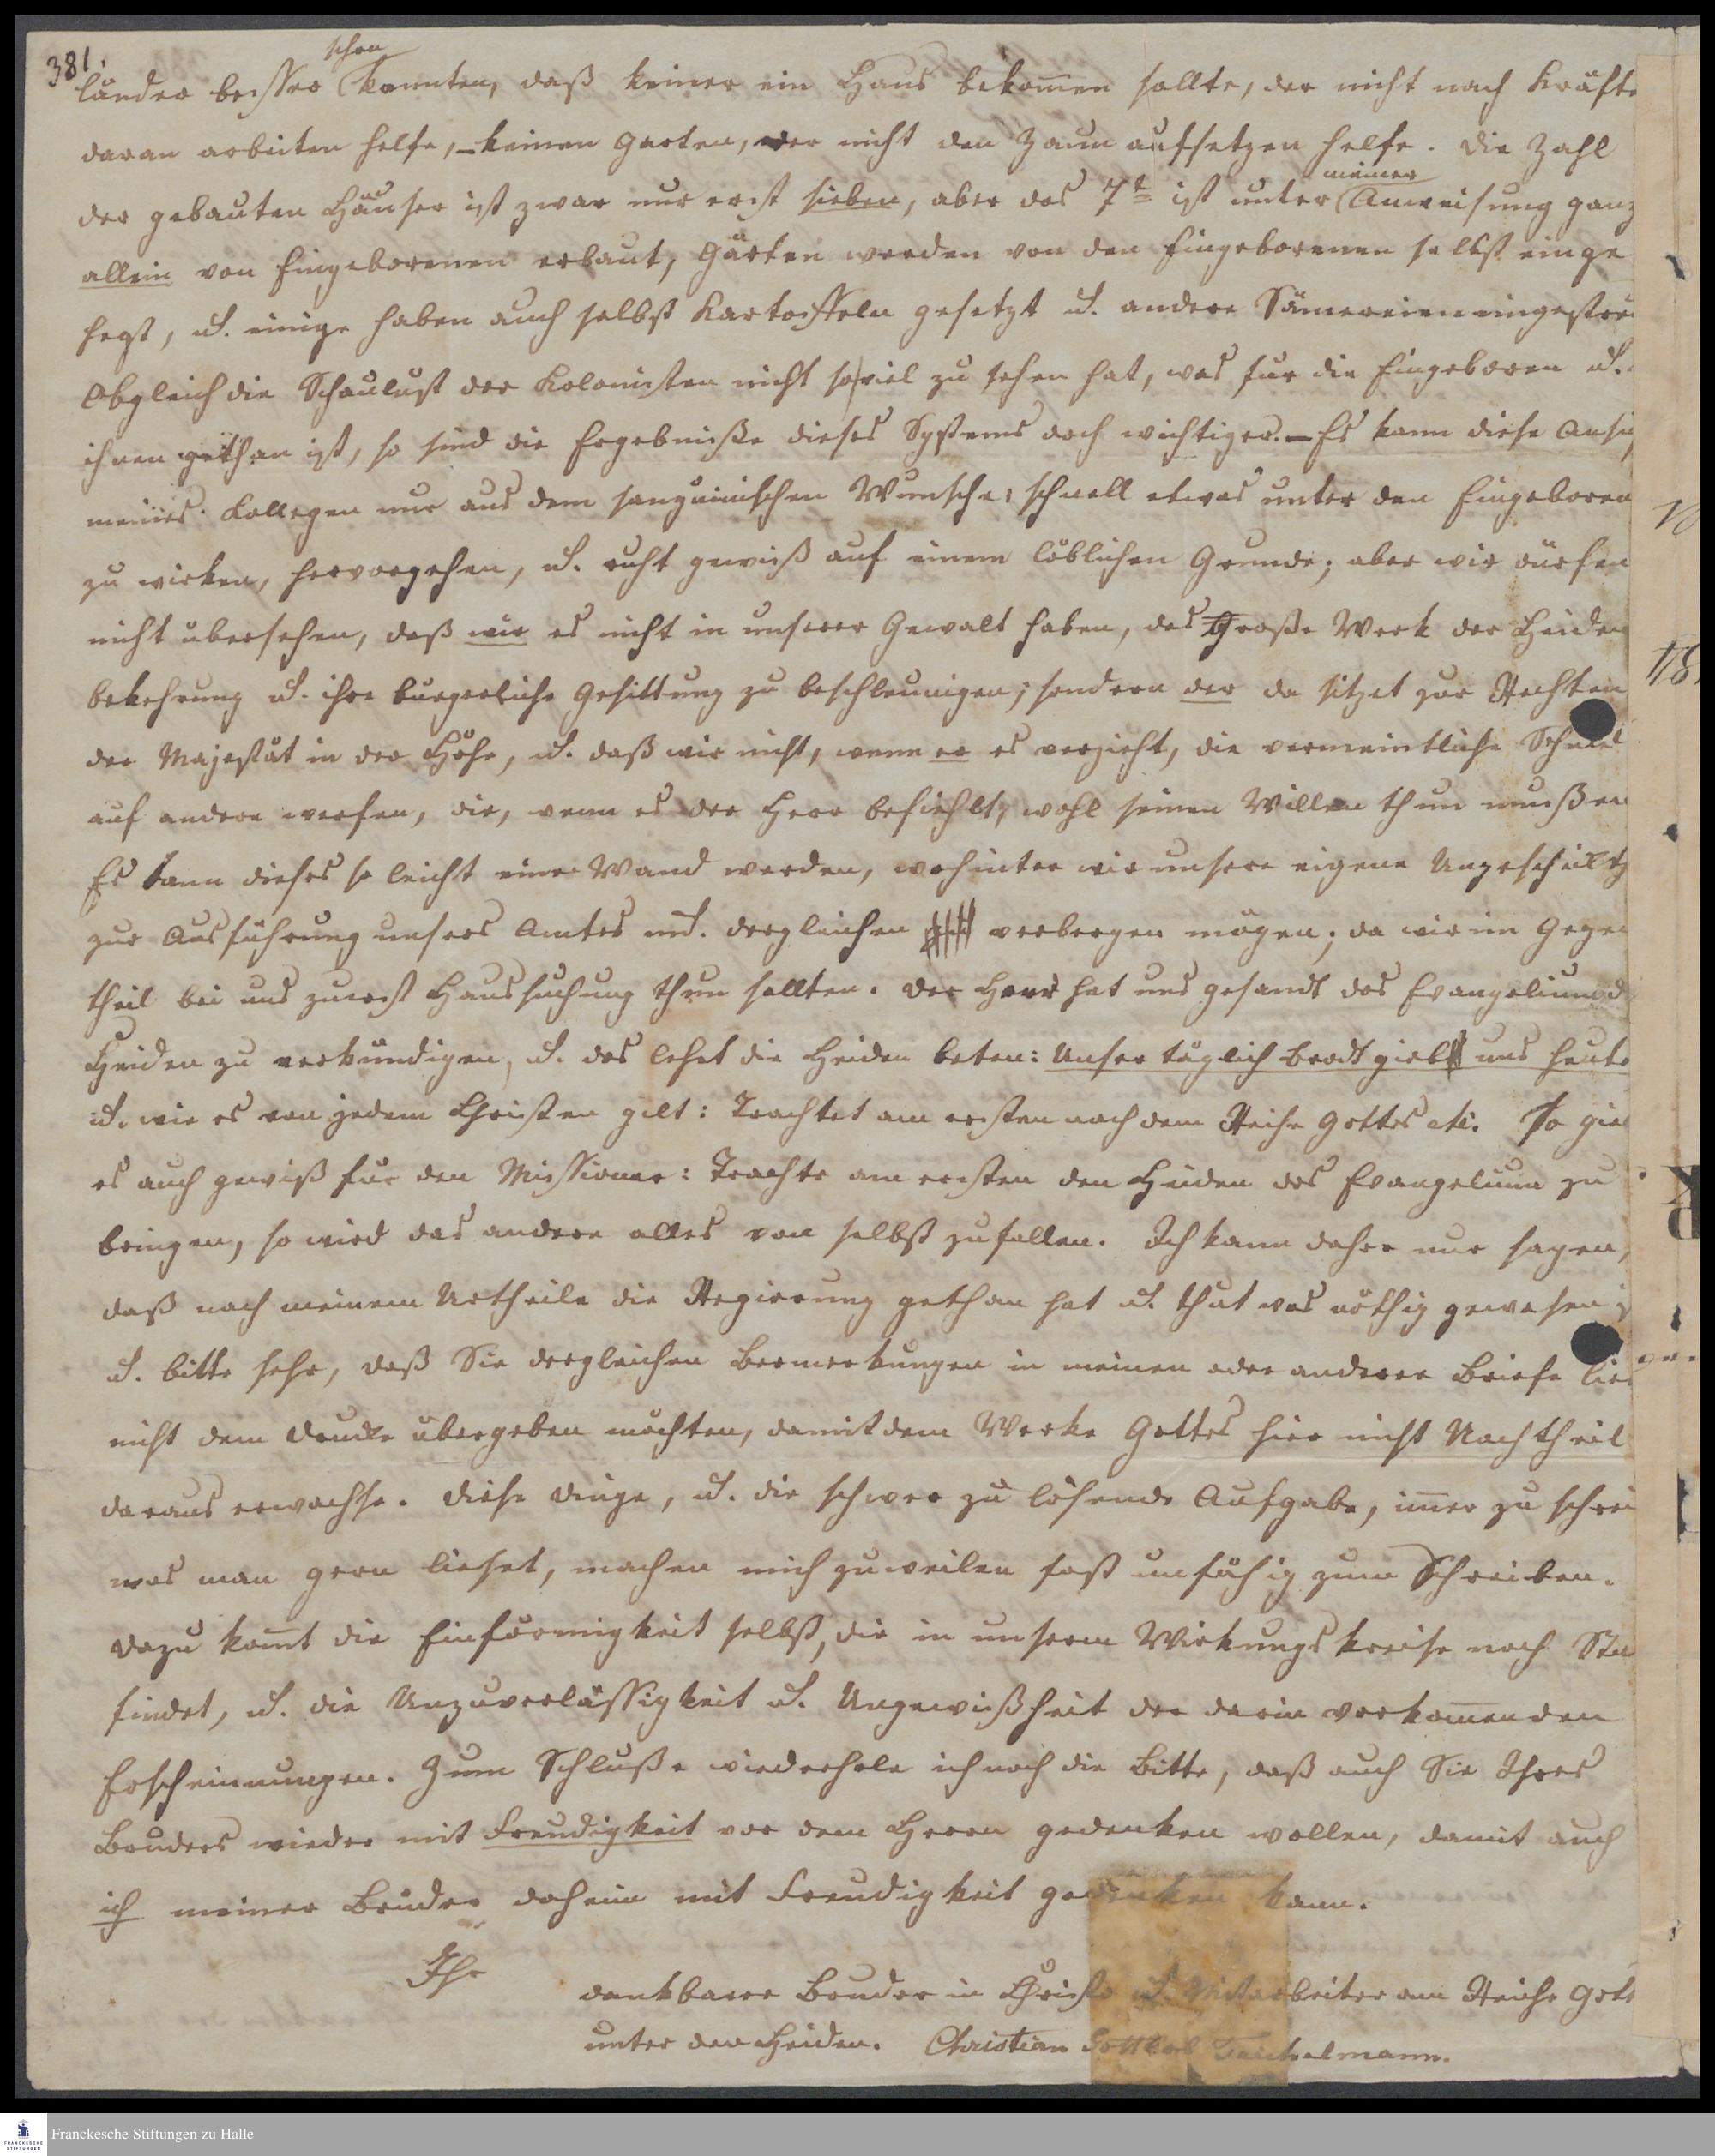 381.
schon
länder besser kannten, daß keiner ein Haus bekom̄en sollte, der nicht nach Kräfte
daran arbeiten helfe, – keinen Garten, der nicht den Zaun aufsetzen helfe. Die Zahl
meiner
der gebauten Häuser ist zwar nur erst sieben, aber das 7te ist unter Anweisung ganz
allein von Eingebornen erbaut, Gärten werden von den Eingebornen selbst einge
hegt, u. einige haben auch selbst Kartoffeln gesetzt u. andere Sämereien eingestreu
Obgleich die Schaulust der Kolonisten nicht so viel zu sehen hat, was für die Eingeboren u.
ihnen gethan ist, so sind die Ergebniße dieses Systems doch wichtiger. – Es kann diese Ansi
meines Kollegen nur aus dem sanguinischen Wunsche, schnell etwas unter den Eingeboren
zu wirken, hervorgehen, u. ruht gewiß auf einem löblichen Grunde; aber wir dürfen
nicht übersehen, daß wir es nicht in unserer Gewalt haben, das Große Werk der Heiden
bekehrung u. ihre bürgerliche Gesittung zu beschleunigen; sondern der da sitzet zur Rechten
der Majestät in der Höhe, u. daß wir nicht, wenn er es verzieht, die vermeintliche Schuld
auf andere werfen, die, wenn es der Herr befiehlt, wohl seinen Willen thun mußen
Es kann dieses so leicht eine Wand werden, wohinter wir unsere eigene
zur Ausführung unsers Amtes und. dergleichen verbergen mögen; da wir im Gegen
theil bei uns zuerst Haussuchung thun sollten. Der Herr hat uns gesandt das Evangelium d
Heiden zu verkündigen, u. das lehrt die Heiden beten: Unser täglich Brodt gieb uns heute
u. wie es von jedem Christen gilt: Trachtet am ersten nach dem Reiche Gottes etc. So gie
es auch gewiß für den Missionar: Trachte am ersten den Heiden das Evangelium zu
bringen, so wird das andere alles von selbst zufallen. Ich kann daher nur sagen,
daß nach meinem Urtheile die Regierung gethan hat u. thut was nöthig gewesen i
u. bitte sehr, daß Sie dergleichen Bermerkungen in meinen oder anderer Briefe lie
nicht dem Drucke übergeben möchten, damit dem Werke Gottes hier nicht Nachtheil
daraus erwachse. Diese Dinge, u. die schwer zu lösende Aufgabe, im̄er zu schrei
was man gern lieset, machen mich zuweilen fast unfähig zum Schreiben.
Dazu kom̄t die Einförmigkeit selbst, die in unserm Wirkungskreise noch Sta
findet, u. die Unzuverlässigkeit u. Ungewißheit der darin vorkom̄enden
Erscheinungen. Zum Schluße wiederhole ich noch die Bitte, daß auch Sie Ihres
Bruders wieder mit Freudigkeit vor dem Herrn gedenken wollen, damit auch
ich meiner Brüder daheim mit Freudigkeit gedenken kann.
Ihr
dankbarer Bruder in Christo u. Mitarbeiter am Reiche Gott
unter den Heiden. Christian Gottlob Teichelmann.
Franckesche Stiftungen zu Halle